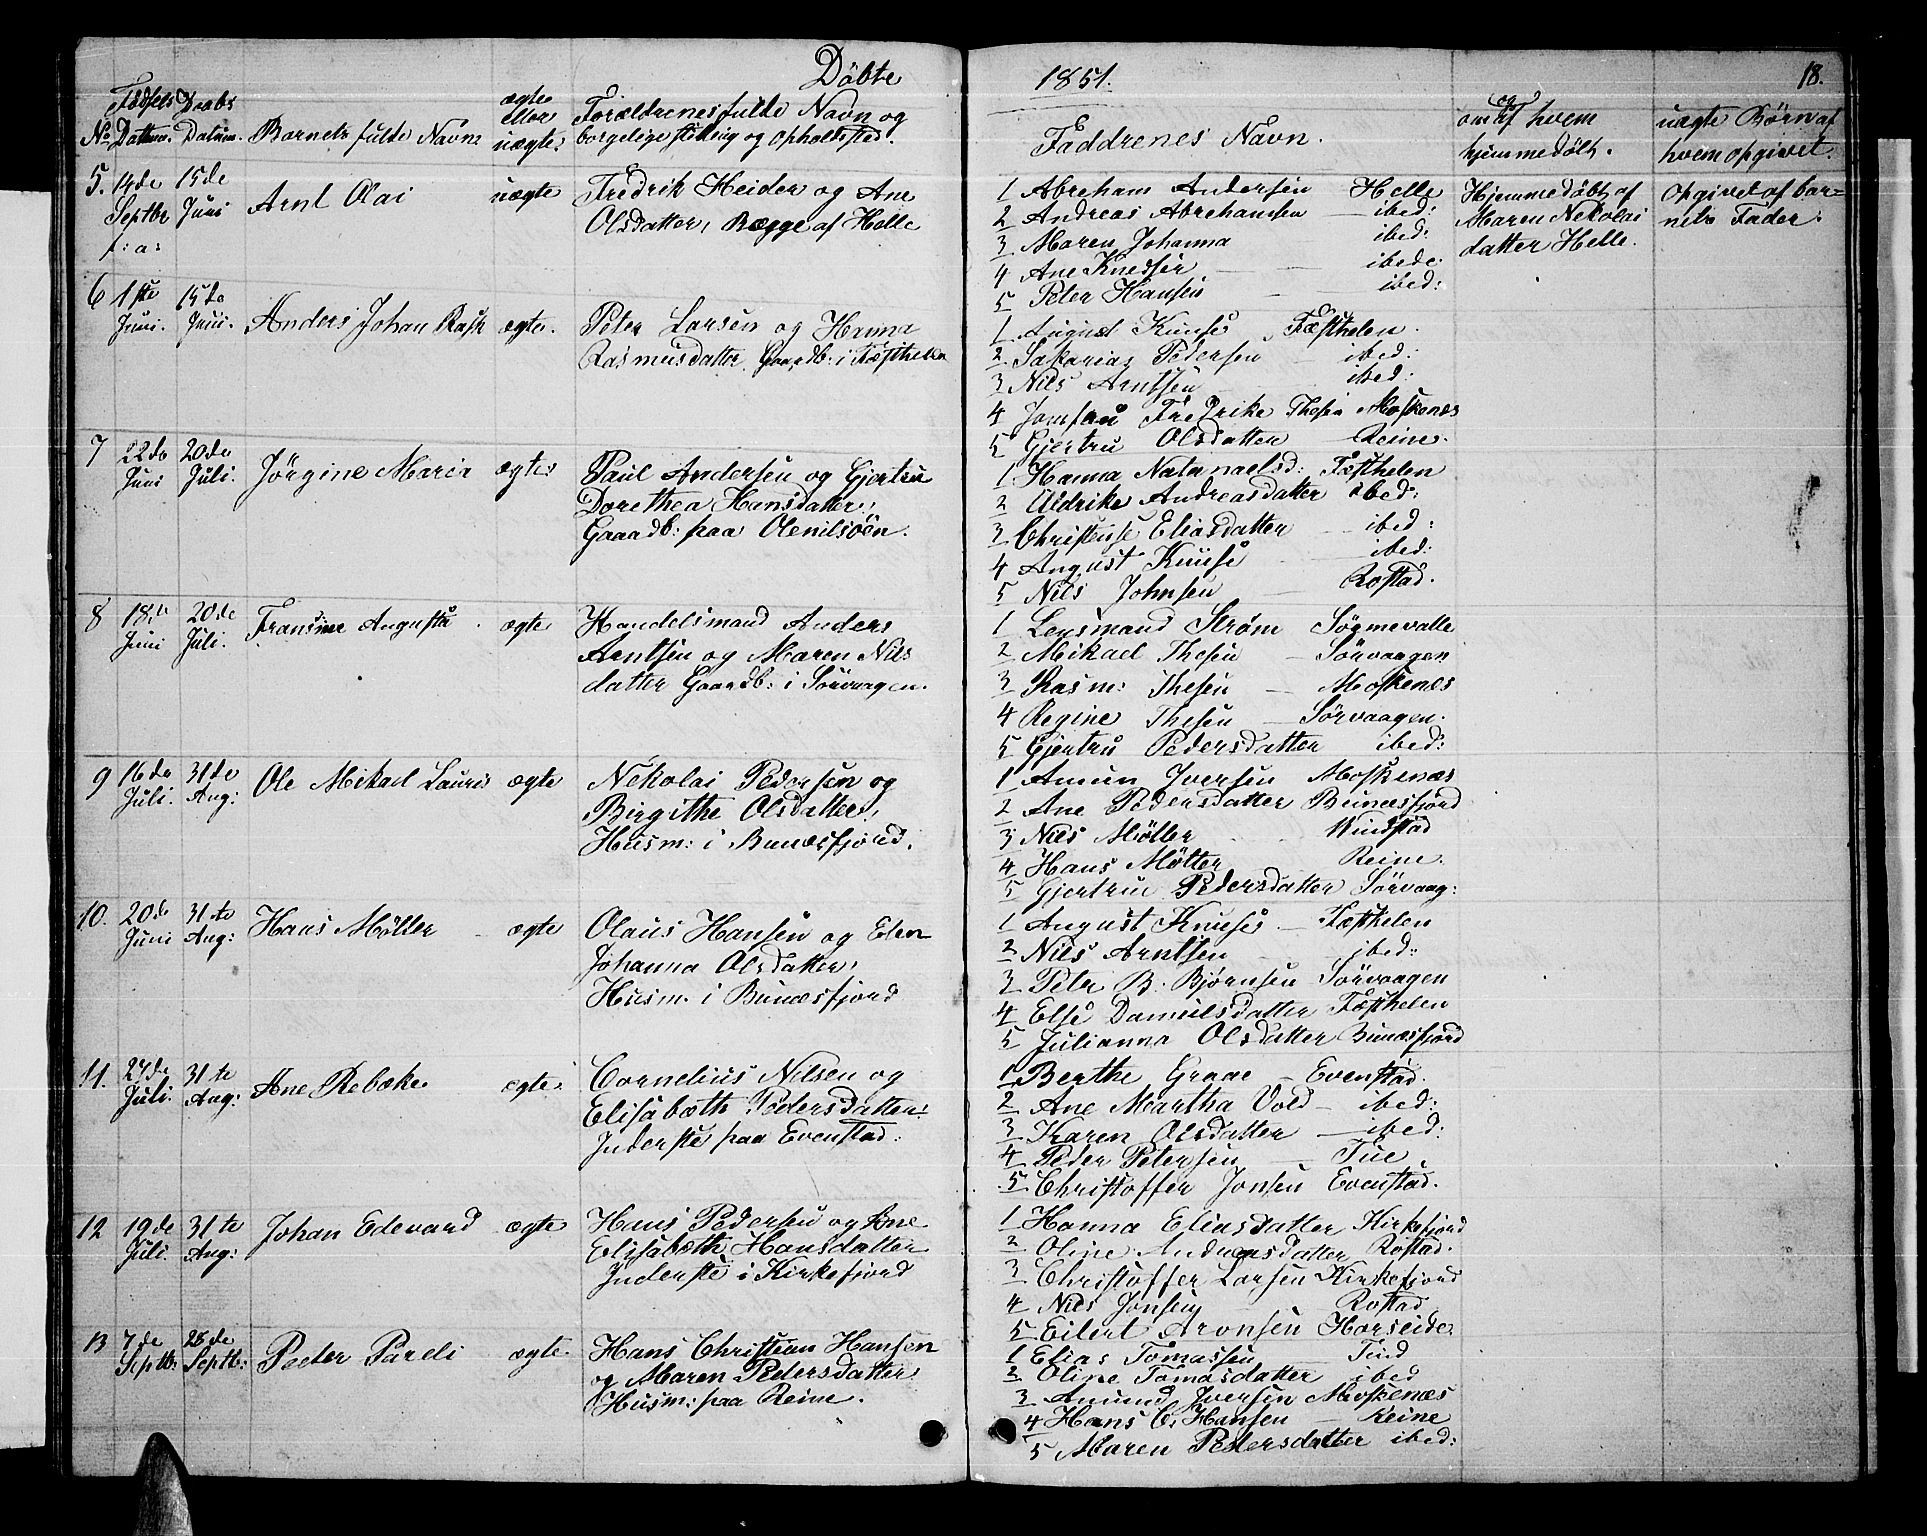 Döbte
1851.
18.
No
Fødsels Datum.
Daabs Datum.
Barnets fulde Navn
ægte eller uægte:
Forældrenes fulde Navn og
borgelige stilling og opholdsted.
Faddrenes Navn.
om og af hvem
hjemmedölt.
uægte Børn af
hvem opgivet.
5.
14de Septbr f: a:
15de Juni
Arnt Olai
uægte
Fredrik Heider og Ane
Olsdatter, Begge af Helle
1 Abreham Andersen Helle
2 Andreas Abrehamsen ibed:
3 Maren Johanna ibed:
4 Ane Knedser ibede
5 Peter Hansen ibed:
Hjemmedöbt af
Maren Nekolai
datter Helle.
opgivet af bar-
nets Fader.
6
1ste Juni.
15de Juni.
Anders Johan Rask
ægte.
Peter Larsen og Hanna
Rasmusdatter. Gaardb: i Fæsthelen
1 August Knuse Fæsthelen.
2 Sakarias Pedersen ibed:
3 Nils Arntsen ibed:
4 Jomfru Fredrike Thesen Moskenes
5 Gjertru Olsdatter Reine.
7
22de Juni
20de Juli.
Jørgine Maria
ægte
Paul Andersen og Gjertru
Dorethea Hansdatter,
Gaardb: paa Olenilsöen.
1 Hanna Natanaelsd: Fæsthelen
2 Uldrike Andreasdatter ibed:
3 Christense Eliasdatter ibed:
4 August Knuse ibed:
5 Nils Johnsen Rostad.
8
18de Juni
20de Juli.
Fransine Augusta
ægte
Handelsmand Anders
Arntsen og Maren Nils
datter Gaardb: i Sörvaagen.
1 Lensmand Strøm Sögmevalle
2 Mikael Thesen Sörvaagen
3 Rasm: Thesen Moskenes
4 Regine Thesen Sörvaagen.
5 Gjertru Pedersdatter ibed:
9
16de Juli.
31de Aug:
Ole Mikael Lauris
ægte
Nekolai Pedersen og
Birgithe Olsdatter,
Husm: i Bunæsfjord.
1 Amun Iversen Moskenæs
2 Ane Pedersdatter Bunæsfjord
3 Nils Möller Windstad
4 Hans Möller Reine.
5 Gjertrue Pedersdatter Sörvaag:
10.
20de Juni
31te Aug:
Hans Møller
ægte
Olaus Hansen og Elen
Johanna Olsdatter,
Husm. i Bunæsfjord
1 August Knuse Fæsthelen
2 Nils Arntsen ibed:
3 Peter B. Bjørnsen Sörvaagen
4 Else Danielsdatter Fæsthelen
5 Julianna Olsdatter Bunæsfjord
11.
27de Juli.
31te Aug:
Ane Rebæke
ægte
Cornelius Nilsen og
Elisabæth Pedersdatter
Inderste paa Evenstad.
1 Berthe Graae Evenstad.
2 Ane Martha Vold ibed:
3 Karen Olsdatter ibed:
4 Peder Petersen Tue.
5 Christoffer Jonsen Evenstad.
12
19de Juli.
31te Aug:
Johan Edevard
ægte
Hans Pedersen og Ane
Elisabæth Hansdatter
Inderste i Kirkefjord
1 Hanna Eliasdatter Kirkefjord
2 Oline Andreasdatter Rostad.
3 Christoffer Larsen Kirkefjord
4 Nils Jonsen Rostad
5 Eilert Aronsen Horseide
13
7de Septb:
28de Septb:
Peeter Pareli
ægte
Hans Christian Hansen
og Maren Pedersdatter
Husm: paa Reine.
1 Elias Tomassen Tind
2 Oline Tomasdatter ibed
3 Amund Iversen Moskenæs
4 Hans C. Hansen Reine
5 Maren Pedersdatter ibed: